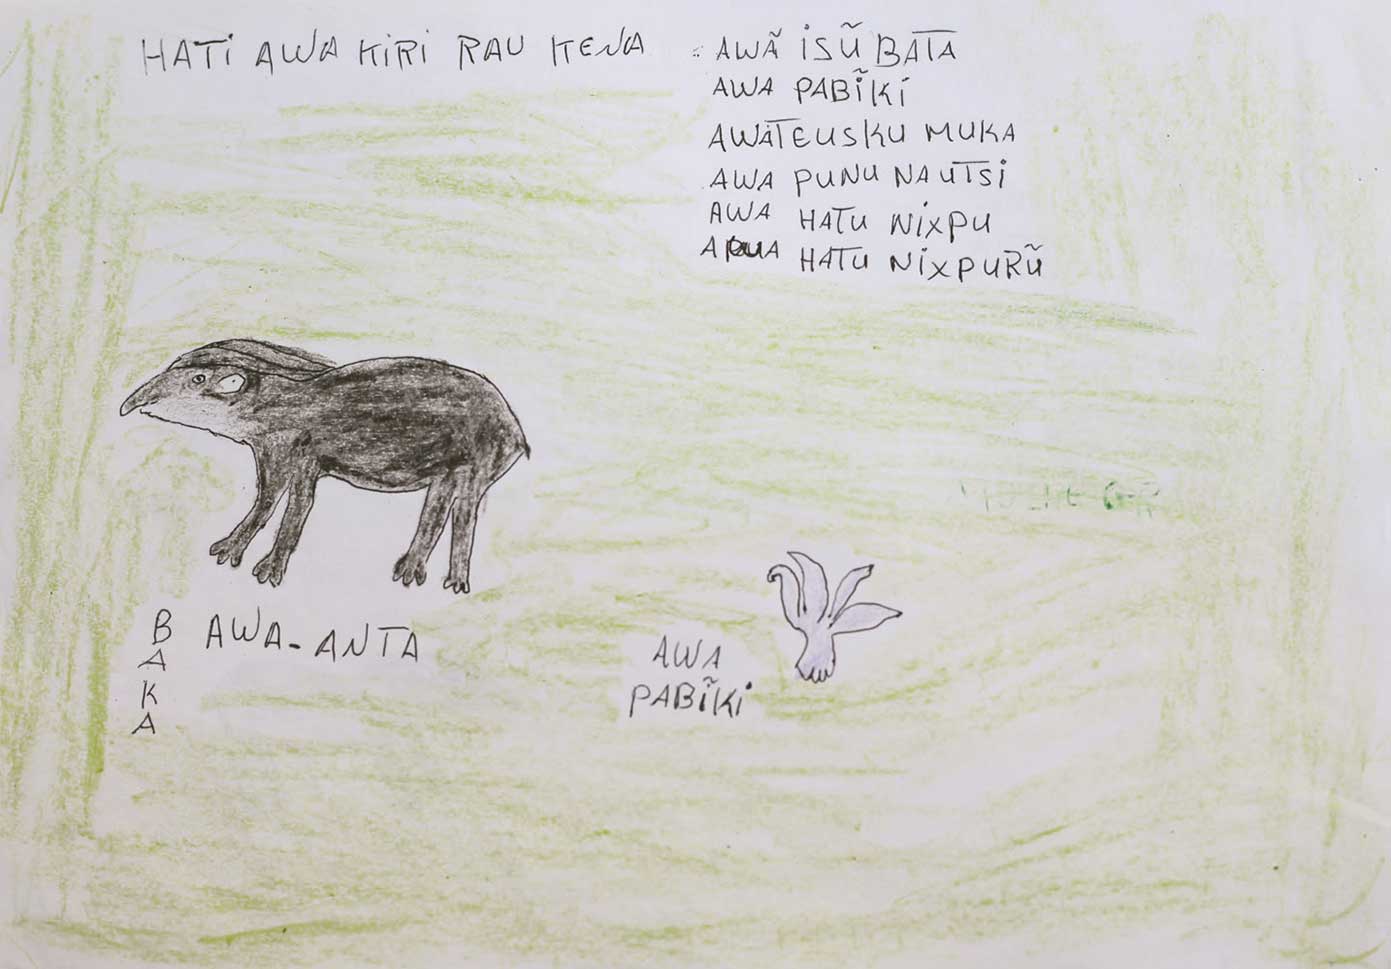 HATI AWA KIRI RAU KENA
AWÃ ISŨBATA
AWA PABĨKI
AWATEUSKU MUKA
AWA PUNU NAUTSI
AWA HATU NIXPU
AWA HATU NIXPURŨ
AWA-ANTA
BAKA
AWA
PABĨKI